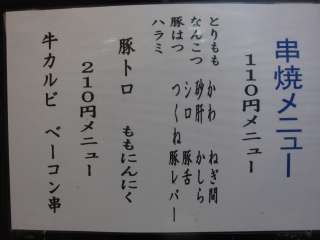 串焼メニュー
110円メニュー
とりもも かわ ねぎ間
なんこつ 砂肝 かしら
豚はつ シロ 豚舌
ハラミ つくね 豚レバー
豚トロ ももにんにく
210円メニュー
牛カルビ ベーコン串